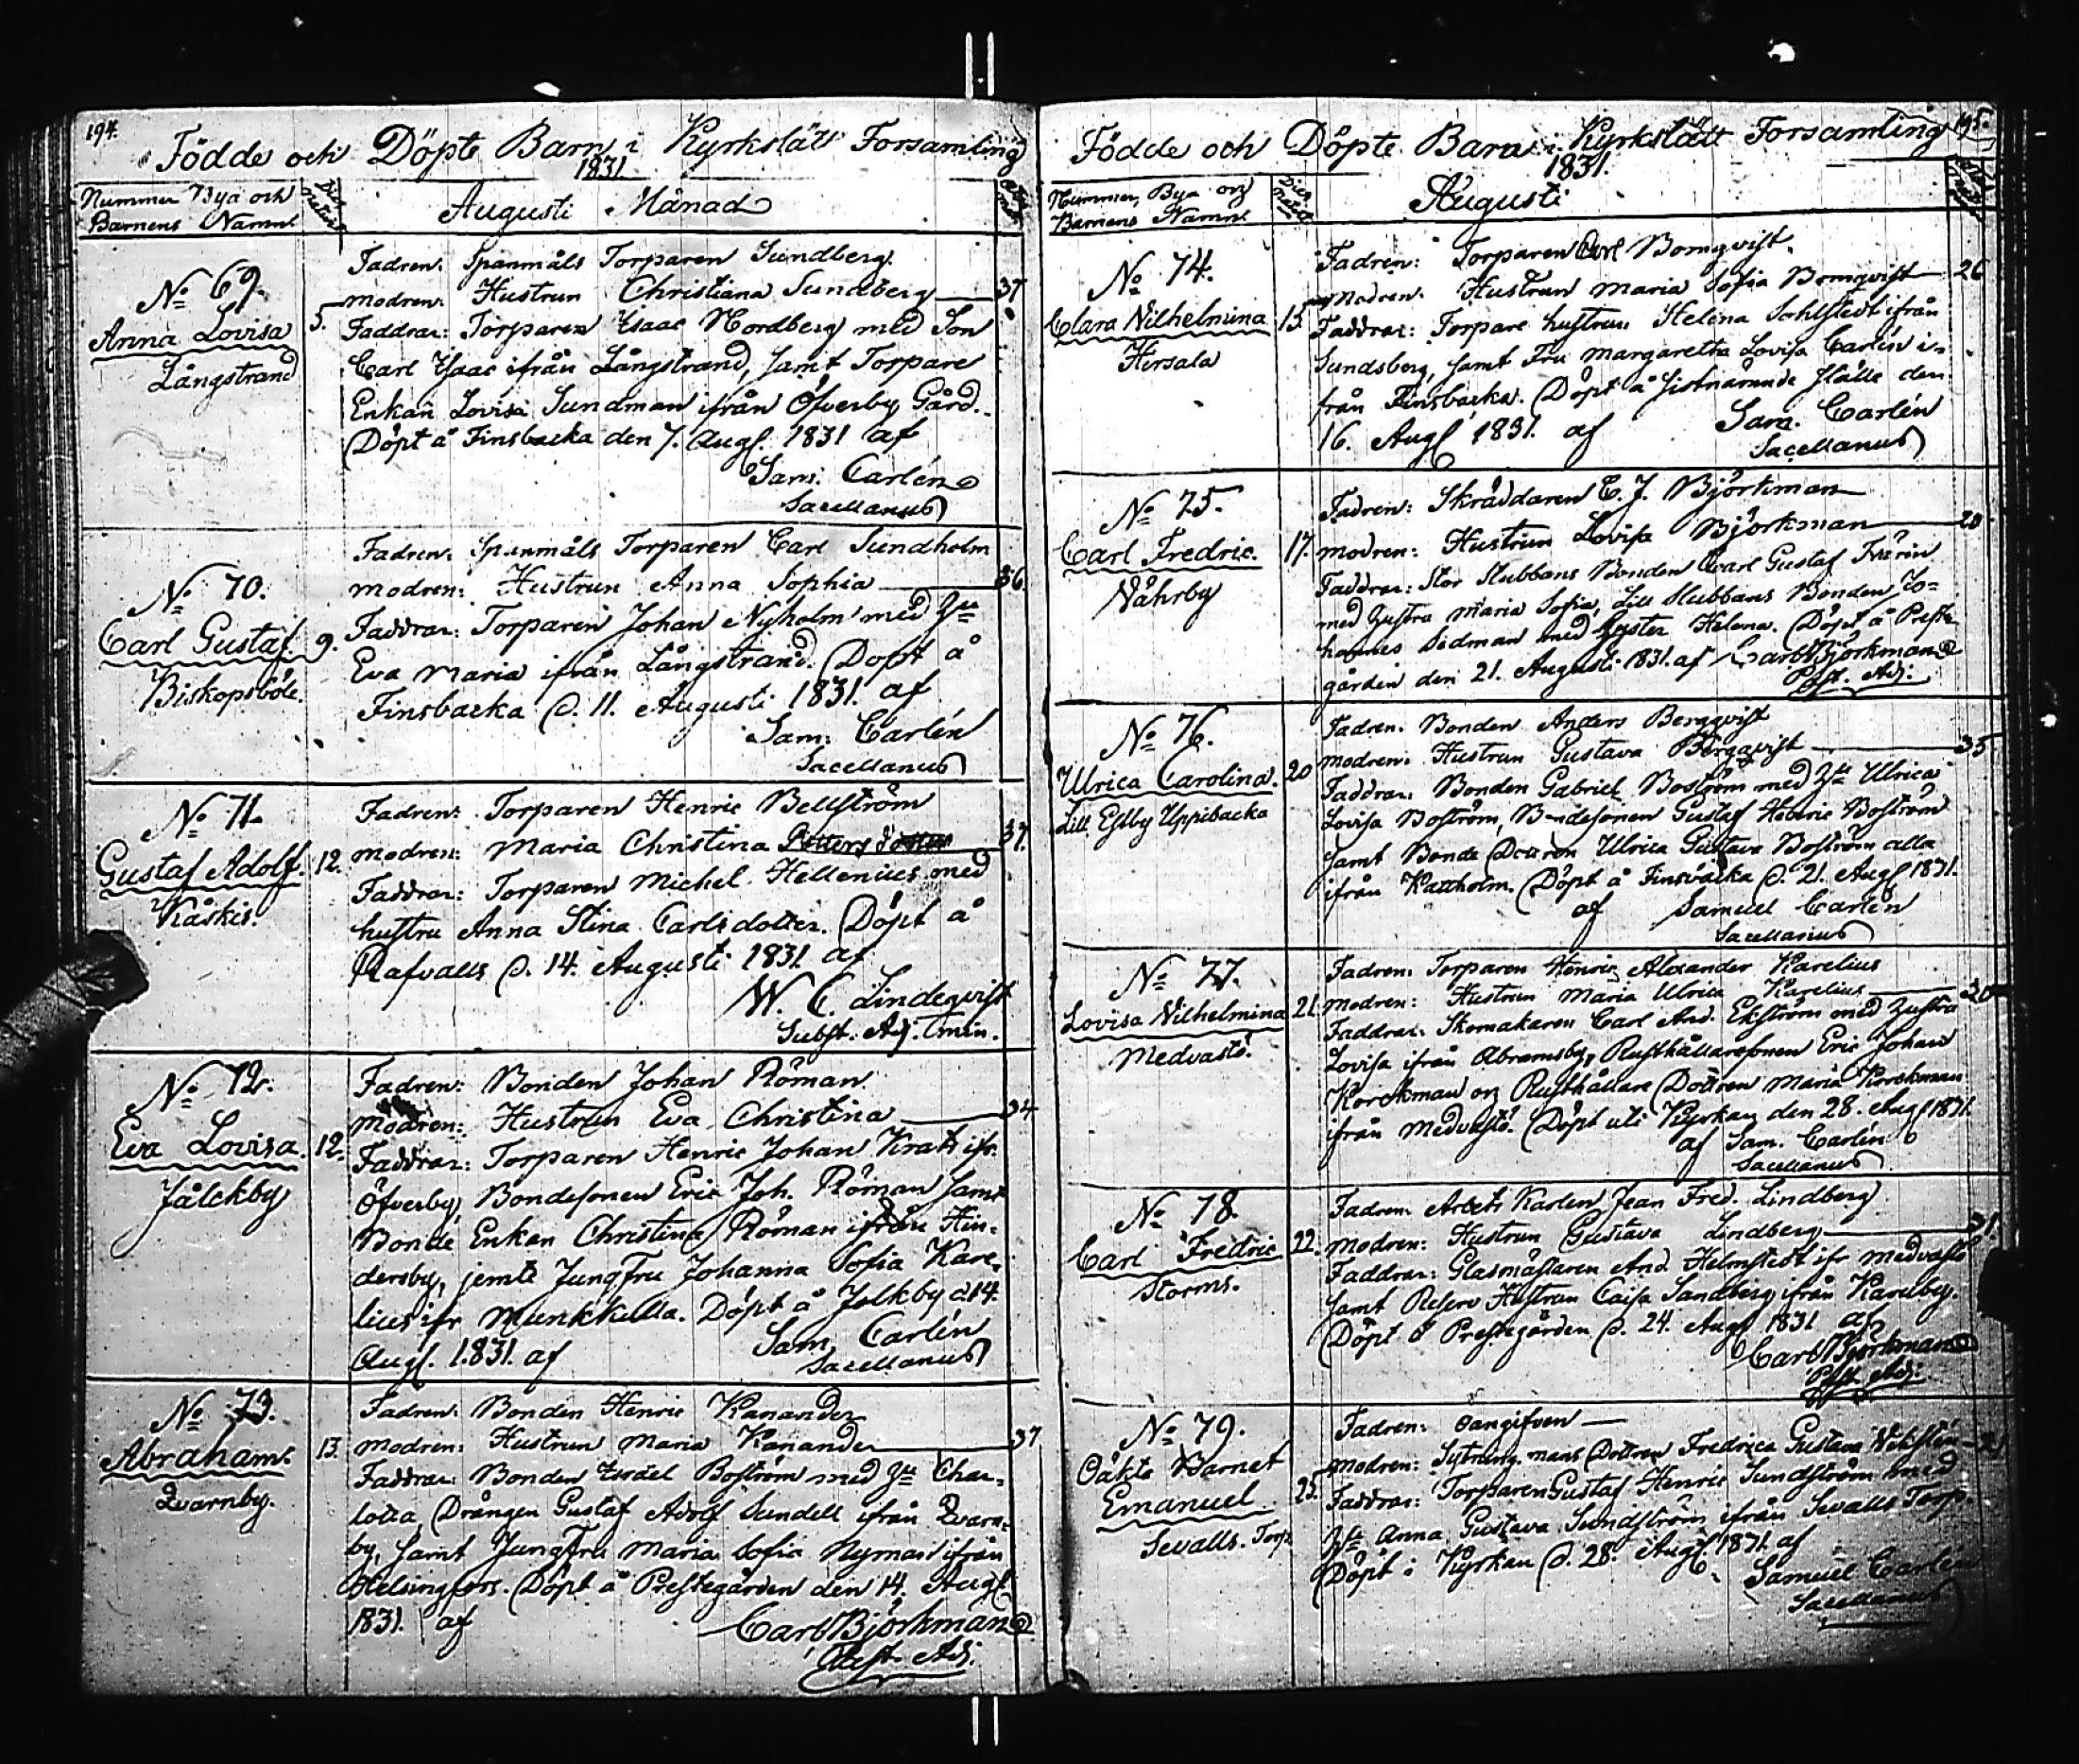 194.
Födde och Döpte Barn i Kyrkslätt Forsamling
1831
Nummer Bya och
Barnens Namn.
Dies
Natus
Augusti Månad
N° 69.
Anna Lovisa
Långstrand
5.
Fadren: Spanmåls Torparen Sundberg.
Modren: Hustrun Christiana Sundberg 37
Faddrar: Torparen Isaac Nordberg med Son
Carl Isaac ifrån Långstrand, samt Torpare
Enkan Lovisa Sundman ifrån Öfverby Gård.
Döpt å Finsbacka den 7. Aug. 1831 af
Sam: Carlén
Sacellanus
N° 70.
Carl Gustaf.
Biskopsböle.
9.
Fadren: Spanmåls Torparen Carl Sundholm
Modren: Hustrun Anna Sophia 36.
Faddrar: Torparen Johan Nyholm med Hu
Eva Maria ifrån Långstrand. Döpt å
Finsbacka d. 11. Augusti 1831. af
Sam: Carlén
Sacellanus
N° 71.
Gustaf Adolf.
Kåskis.
12.
Fadren: Torparen Henric Bellström
Modren: Maria Christina 37.
Faddrar: Torparen Michel Hellenius med
hustru Anna Stina Carlsdotter. Döpt å
Rafvalls d. 14. Augusti 1831. af
W. C. Lindeqvist
Subst. Adj. Min.
N° 72.
Eva Lovisa.
Jålckby
12.
Fadren: Bonden Johan Röman.
Modren: Hustrun Eva Christina 34
Faddrar: Torparen Henric Johan Kratt ifr.
Öfverby, Bondesonen Eric Joh. Röman samt
Bonde Enkan Christina Röman ifrån Hin-
dersby, jemte Jungfru Johanna Sofia Kare-
lius ifr Munkkulla. Döpt å Jolkby d 14.
Aug. 1831. af Sam Carlén
Sacellanus
N° 73.
Abraham.
Qvarnby.
13.
Fadren: Bonden Henric Kanander
Modren: Hustrun Maria Kanander 37
Faddrar: Bonden Israel Boström med Hu Char-
lotta, Drängen Gustaf Adolf Sundell ifrån Qvarn-
by, samt Jungfru Maria Sofia Nyman ifrån
Helsingfors. Döpt å Prestegården den 14. Aug.
1831. af Carl Björkman
Past. Adj.
195.
Födde och Döpte Barn i Kyrkslätt Forsamling
1831.
Nummer, Bya och
Barnens Namn.
Dies
Natus
Augusti
N° 74.
Clara Wilhelmina
Hirsala
15.
Fadren: Torparen Carl Bomqvist.
Modren: Hustrun Maria Sofia Bomqvist 26
Faddrar: Torpare hustrun Helena Sohlstedt ifrån
Sundsberg, samt Fru Margaretha Lovisa Carlén i-
från Finsbacka. Döpt å sistnämnde ställe den
16. Aug 1831. af Sam. Carlén
Sacellanus
N° 75.
Carl Fredric.
Våhrby
17.
Fadren: Skräddaren C. J. Björkman
Modren: Hustrun Lovisa Björkman 20
Faddrar: Stor Stubbans Bonden Carl Gustaf
med hustru Maria Sofia, Lill Stubbans Bonden Jo-
hannes Sidman med syster Helena. Döpt å Preste
gården den 21. Augusti 1831. af Carl Björkman
Past. Adj:
N° 76.
Ulrica Carolina.
Lill Esby Uppibacka
20
Fadren: Bonden Anders Bergqvist
Modren: Hustrun Gustava Bergqvist 35
Faddrar: Bonden Gabriel Boström med Hu Ulrica
Lovisa Boström, Bondesonen Gustaf Henric Boström
samt Bonde Dottren Ulrica Gustava Boström alla
ifrån Kattholm. Döpt å Finsbacka d. 21. Aug 1831.
af Samuel Carlén
Sacellanus
N° 77.
Lovisa Wilhelmina
Medvastö.
21.
Fadren: Torparen Henric Alexander Karelius
Modren: Hustrun Maria Ulrica Karelius 30
Faddrar: Skomakaren Carl And. Ekström med hustru
Lovisa ifrån Abramsby, Rusthållaresonen Eric Johan
Korckman och Rusthållare Dottren Maria Korckman
ifrån Medvastö. Döpt uti Kyrkan den 28. Aug 1831.
af Sam. Carlén
Sacellanus
N° 78.
Carl Fredric
Storms.
22.
Fadren: Arbets Karlen Jean Fred. Lindberg
Modren: Hustrun Gustava Lindberg 31
Faddrar: Glasmästaren And. Helmstedt ifr Medvastö
samt Reserv Hustrun Caisa Sandberg ifrån Karelby.
Döpt å Prestegården d. 24. Aug 1831 af
Carl Björkman
Past. Adj:
N° 79.
Oäkta Barnet
Emanuel
Sevalls. Torp.
25.
Fadren: Oangifven
Modren: Dottren Fredrica Gustava
Faddrar: Torparen Gustaf Henric Sundström med
Hu Anna Gustava Sundström ifrån Sevalls Torp.
Döpt i Kyrkan d. 28. Aug 1831. af
Samuel Carlén
Sacellanus